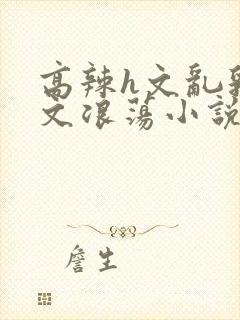 高辣h文亂
文浪蕩小說
詹生